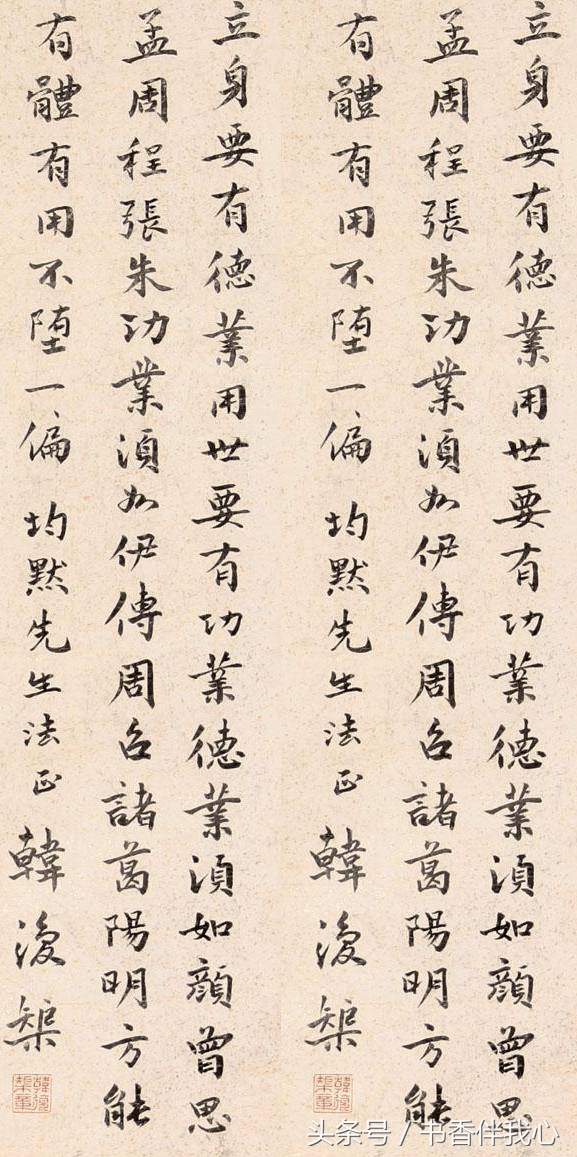 立身要有德業用世要有功業德業須如顏曾思
孟周程張朱功業須如伊傅周召諸葛陽明方能
有體有用不墮一偏 均默先生法正 韓復榘
立身要有德業用世要有功業德業須如顏曾思
孟周程張朱功業須如伊傅周召諸葛陽明方能
有體有用不墮一偏 均默先生法正 韓復榘
头条号 / 书香伴我心